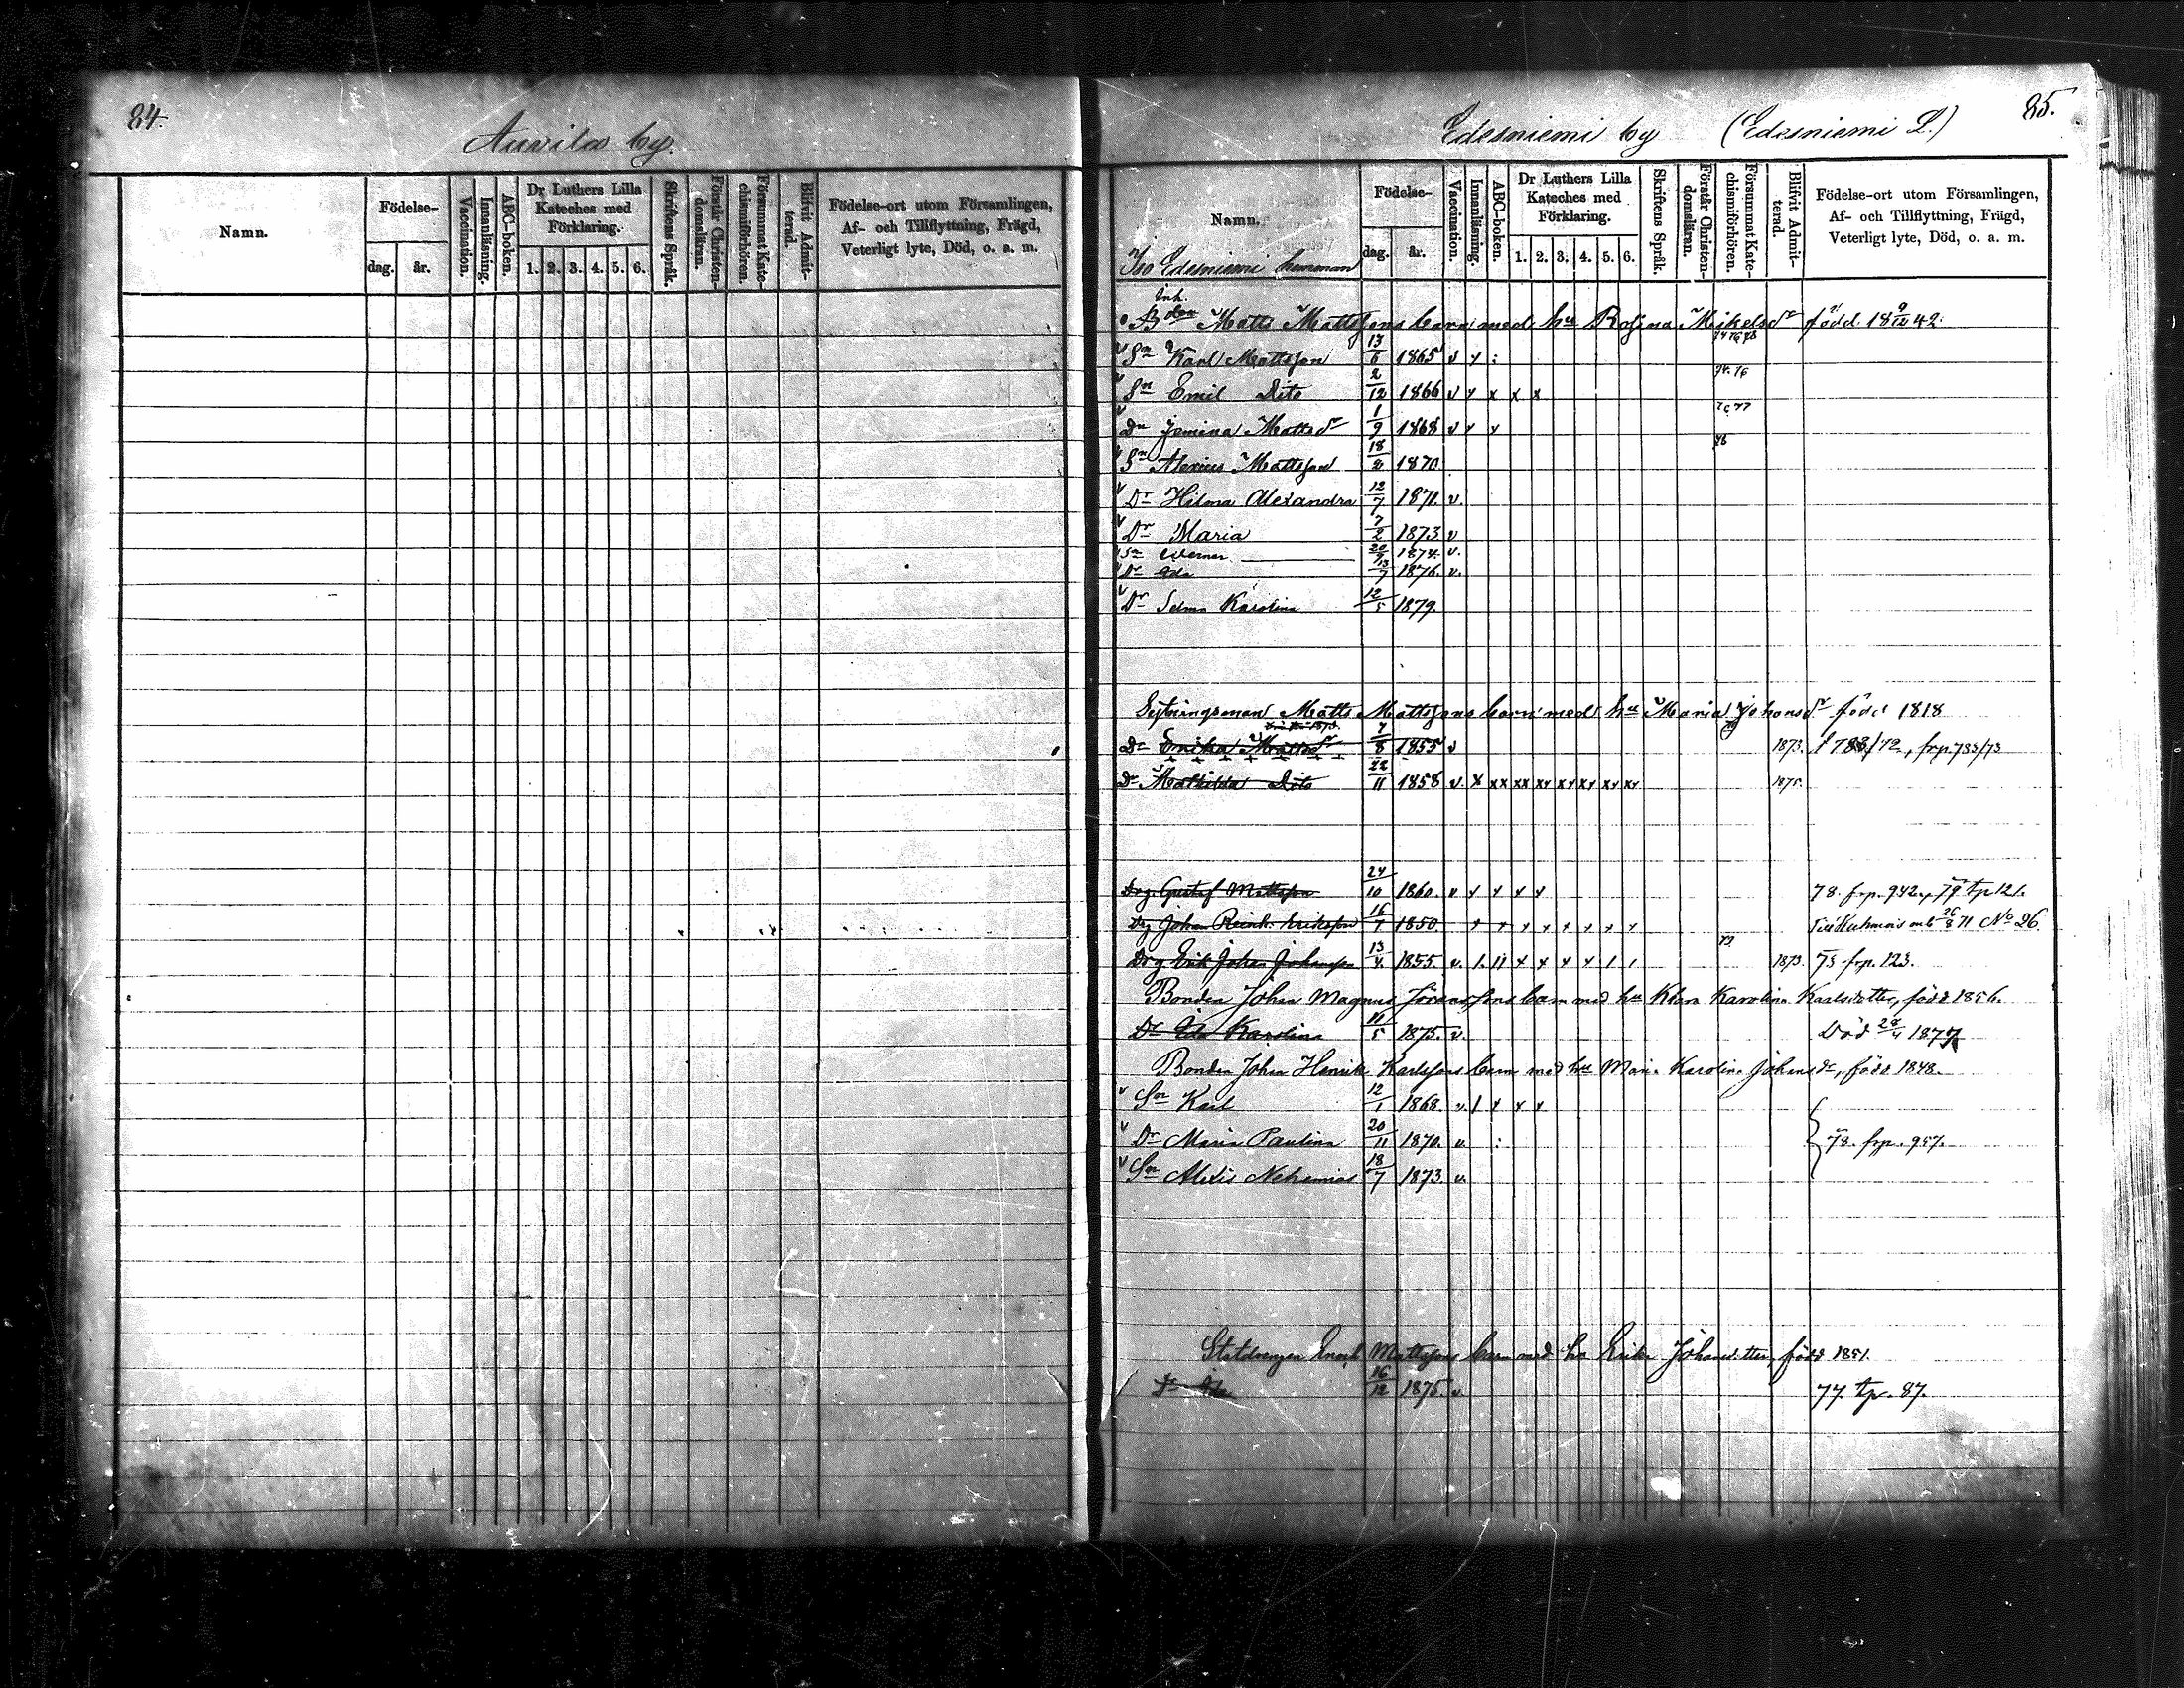 84.
Auvila by.
Namn.
Födelse-
dag. år.
Vaccination.
Innanläsning.
ABC-boken.
Dr Luthers Lilla Kateches med Förklaring.
1. 2. 3. 4. 5. 6.
Skriftens Språk.
Förstår Christendomsläran.
Försummat Katechismiförhören.
Blifvit Admitterad.
Födelse-ort utom Församlingen,
Af- och Tillflyttning, Frägd,
Veterligt lyte, Död, o. a. m.
85.
Edesniemi by (Edesniemi L.)
Namn.
Iso Edesniemi hemman
Födelse-
dag. år.
Vaccination.
Innanläsning.
ABC-boken.
Dr Luthers Lilla Kateches med Förklaring.
1. 2. 3. 4. 5. 6.
Skriftens Språk.
Förstår Christen-domsläran.
Försummat Kate-chismiförhören.
Blifvit Admit-terad.
Födelse-ort utom Församlingen,
Af- och Tillflyttning, Frägd,
Veterligt lyte, Död, o. a. m.
Inh.
Bden Matts Mattssons barn med hu Rosina Mikelsdr född 18 9/12 42.
74 76 78
Sn Karl Mattsson 13/6 1865 v x :
74. 76
Sn Emil Dito 2/12 1866 v x x x x
76 77
Dr Jemina Mattsdr 1/9 1868 v x x
78
Sn Alexius Mattsson 18/2 1870
Dr Hilma Alexandra 12/7 1871. v.
Dr Maria 7/2 1873 v
Sn Werner 20/9 1874. v.
Dr Ida 13/7 1876. v.
Dr Selma Karolina 12/5 1879.
Sytningsman Matts Mattssons barn med hu Maria Johansdr född 1818
Dr Erika Mattsdr 7/8 1855 v 1873. f 783/72, frp. 733/73
Dr Mathilda Dito 22/11 1858 v. x xx xx xx xx xx xx xx 1875.
Drg Gustaf Mattsson 24/10 1860. v x x x x 78. frp. 942., 79. tp 121.
Drg Johan Reinh. Eriksson 16/7 1850. x x x x x x x x Till Kuhmois mb 26/8 71 No 26.
Drg Erik Johan Johansson 13/4 1855. v. 1. 11 x x x x 1 1 1873. 75 frp. 123.
Bonden Johan Magnus Jöranssons barn med hu Klara Karolina Karlsdotter, född 1856.
Dr Ida Karolina 11/5 1875. v. Död 28/4 1877
Bonden Johan Henrik Karlssons barn med hu Maria Karolina Johansdr, född 1848.
Sn Karl 12/1 1868. v. 1 x x x
Dr Maria Paulina 20/11 1870. v. : 78. frp. 957.
Sn Alexis Nehemias 18/7 1873 v.
Statdrengen Enok Mattssons barn med hu Erika Johansdotter, född 1851.
Dr Ida 16/12 1875. v. 77. tp. 87.